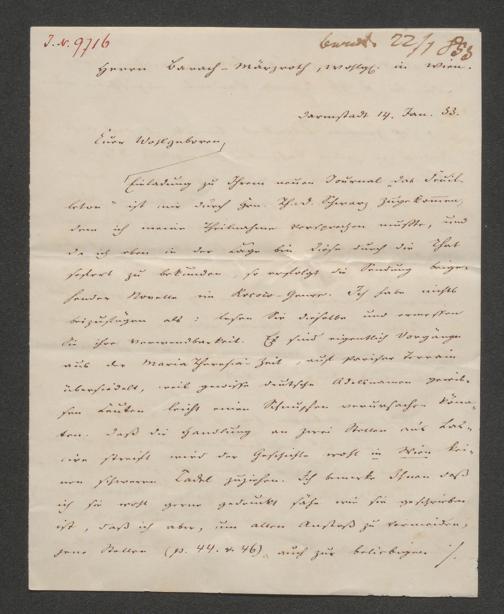 J. N. 9716
beantw. 22/1 853
Herrn Barach-Märzroth, Wohlg. in Wien.
Darmstadt 14. Jan. 53.
Euer Wohlgeboren,
Einladung zu Ihrem neuen Journal „das Feuil-
leton" ist mir durch Hrn. Th. d. Schwarz zugekommen,
dem ich meine Theilnahme versprechen mußte, und
da ich eben in der Lage bin diese durch die That
sofort zu bekunden, so erfolgt die Sendung beige-
hender Novelle im Rococo-Genre. Ich habe nichts
beizufügen als: lesen Sie dieselbe und ermessen
Sie ihre Verwendbarkeit. Es sind eigentlich Vorgänge
aus der Maria Theresia-Zeit, auf Pariser Terrain
übersiedelt, weil gewisse deutsche Adelsnamen gewis-
sen Leuten leicht einen Schnupfen verursachen könn-
ten. Daß die Handlung an zwei Stellen aus Las-
cive streift wird der Geschichte wohl in Wien kei-
nen schweren Tadel zuziehen. Ich bemerke Ihnen daß
ich sie wohl gerne gedruckt sähe wie sie geschrieben
ist, daß ich aber, um allen Anstoß zu vermeiden,
jene Stellen (p. 44. u. 46) auch zur beliebigen ./.